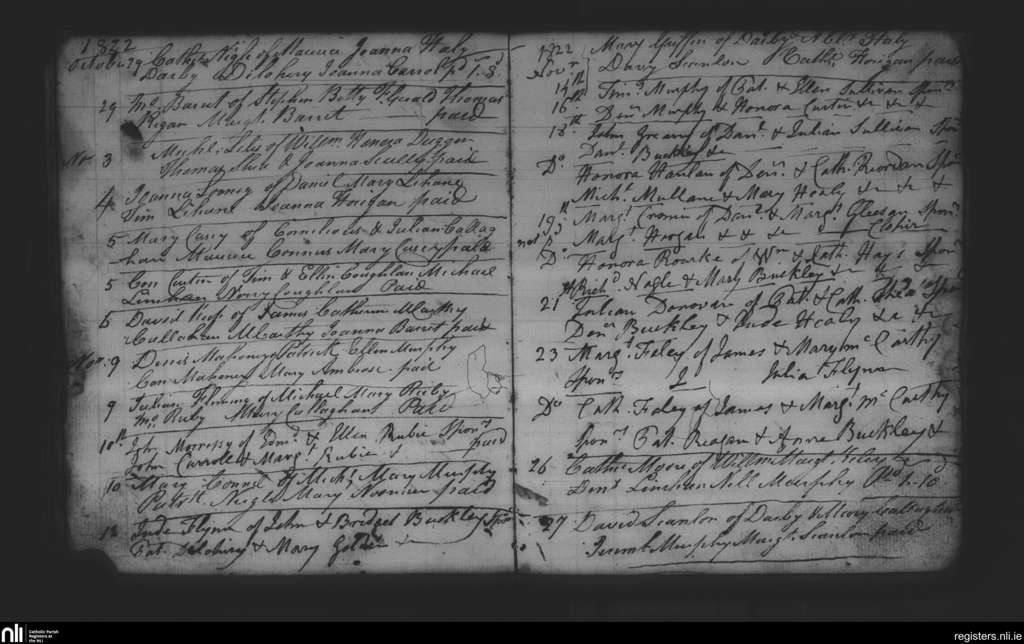 1822
October 29 Cathe Nigle of Maurice Joanna Haly
Darby Delohery Joanna Carrol pd 1..8
29 Mo. Barret of Stephen Betty F.Gerald Thomas
Rigan Margt. Barret paid
Nor. 3 Michl. of Willm. Honora Duggan
Thomas Shea & Joanna Scully paid
4 Joanna of Daniel Mary Lihane
Tim Lihane Joanna Horigan paid
5 Mary Casey of Cornilious & Julian Callag
han Maurice Connors Mary Casey paid
5 Con Curtin of Tim & Ellin Coughlan Michael
Linehan Nory Coughlan Paid
6 David Keef of James Catherine McCarthy
Callahan McCarthy Joanna Barrit paid
Nov. 9 Denis Mahony Patrick Ellen Murphy
Con Mahoney Mary Ambrose paid
9 Julian Fleming of Michael Mary Rieby
Mo. Rieby Mary Callaghan Paid
10th Jon. Morrisy of Edmd. & Ellen Rubie Sponrs
John Carroll & Margt. Rubie & paid
10 Mary Connel of Michl. Mary Murphy
Patrk. Nagle Mary Noonan paid
12 Jude Flynn of John & Bridget Buckley Spon
Pat. Delohiry & Mary
1822
Novr. Mary Griffin of Darby Nell Haly
Davy Scanlon Cathe. Horigan paid
14th Timy. Murphy of Pat. & Ellen Sullivan Sponrs
16th Denis Murphy & Honora Curtin &c & &
18th John of Danl. & Julian Sullivan Spon
Danl. Buckley &c
Do. Honora Hanlan of Denis. & Cath. Riordan Spon
Michl. Mullane & Mary Healy &c & &
19th Margt. Cronin of Danl. & Margt. Gleeson Sponrs
not pd Margt. Horgan & & &c
Do Honora Rourke of Wm & Cath. Hays Spon
Richd. Nagle & Mary Buckley &c
21 Julian Donovan of Pat. & Cath. Shea Spon
Denis Buckley & Jude Healy &c &c
23 Margt. Foley of James & Mary Mc Carthy
Sponrs Julia Flynn
Do Cath. Foley of James & Margt. Mc Carthy
Sponrs Pat. Reagan & Anne Buckley &
26 Cathe Moore of Willm Margt.
Denis Linehan Nell Murphy Pd 1..10
27 David Scanlon of Darby & Mary Callaghan
Jerem. Murphy Margt. Scanlon paid
nli
Catholic Parish
Registers at
the NLI
registers.nli.ie